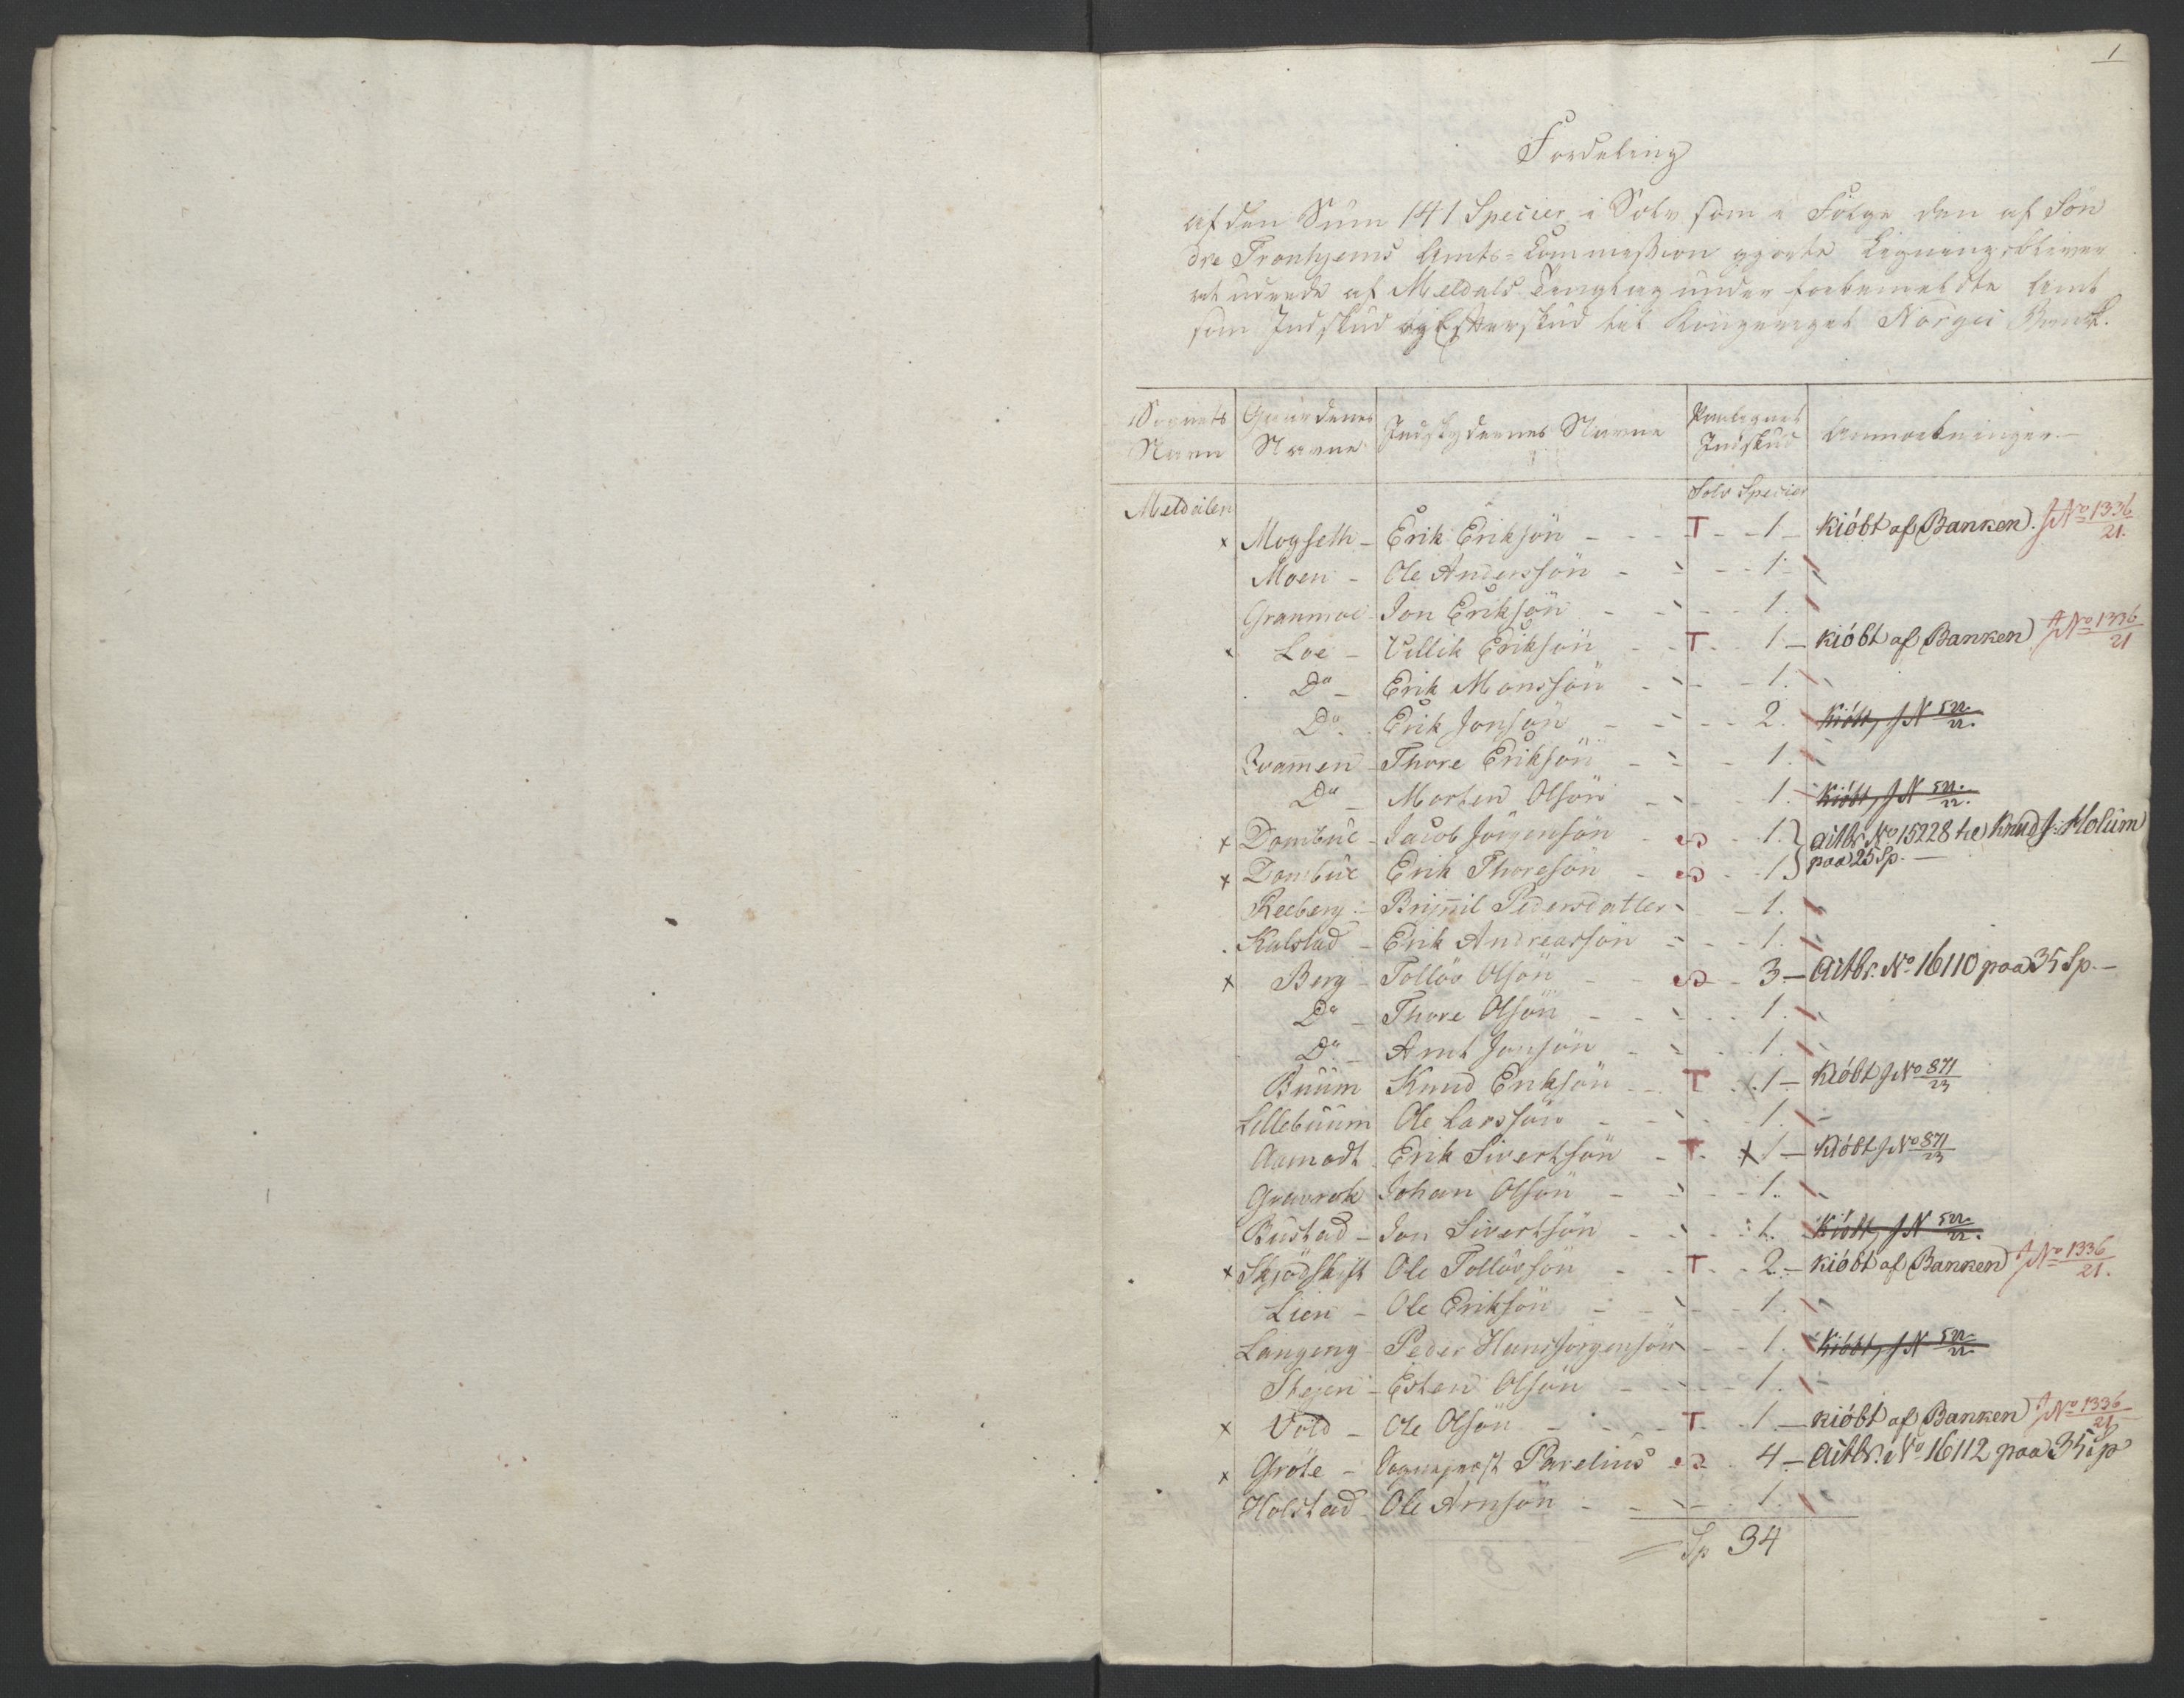 1
Fordeling
af den Sum 141 Specier i Sølv som i Følge den af Søn
dre Tronhjems Amts-Commission gjorte Ligning bliver
at udrede af Meldals Tinglag under forbemeldte Amt
som Indskud og Efterskud til Kongeriget Norges Bank.
Sognets Navn | Gaardenes Navne | Indskydernes Navne | Paalignet Indskud | Anmærkninger
Sølv Specier
Meldalen
x Mogseth - Erik Erikson - T - 1 - kiöbt af Banken. J No 1336/21.
Moen - Ole Andersön - 1.
Granmoe - Jon Eriksön - 1.
x Loe - Villik Eriksön - T - 1 - kiöbt af Banken J No 1336/21
Do - Erik Monssön - 1.
Do - Erik Jonsön - 2. Kiöbt, J N 522/22.
Qvamen - Thore Eriksön - 1.
Do - Morten Olsön - 1. Kiöbt, J N 522/22.
x Dombue - Jacob Jörgensön - 1. } Actbr. No 15228 til Knud J. Holum
x Dombue - Erik Thoresön - 1 } paa 25 Sp. -
Reeberg - Brynnil Pedersdatter - 1.
Kalstad - Erik Andreassön - 1.
x Berg - Tollöv Olsön - 3 - Actbr. No 16110 paa 35 Sp. -
Do - Thore Olsön - 1.
Do - Arnt Jonsön - 1.
Buum Knud Eriksön - T - 1 - Kiöbt J No 871/23
Lillebuum Ole Larssön - 1.
Aamodt Erik Sivertsön - T. x 1 - Kiöbt J No 871/23
Gravrok Johan Olsön - 1.
Bustad - Jon Sivertsön - 1. Kiöbt, J N 522/22.
x Skjödskift Ole Tollövsön - T - 2 - kiöbt af Banken J No 1336/21.
Lien - Ole Eriksön - 1.
Langeng - Peder Hansjörgensön - 1. Kiöbt, J N 522/22
Stegen - Esten Olsön - 1.
x Vold - Ole Olsön - T - 1 - kiöbt af Banken J No 1336/21
x Gröte - Sognepræst Parelius - 4 - Actbr. No 16112 paa 35 Sp
Holstad Ole Arnsön - 1.
Sp 34